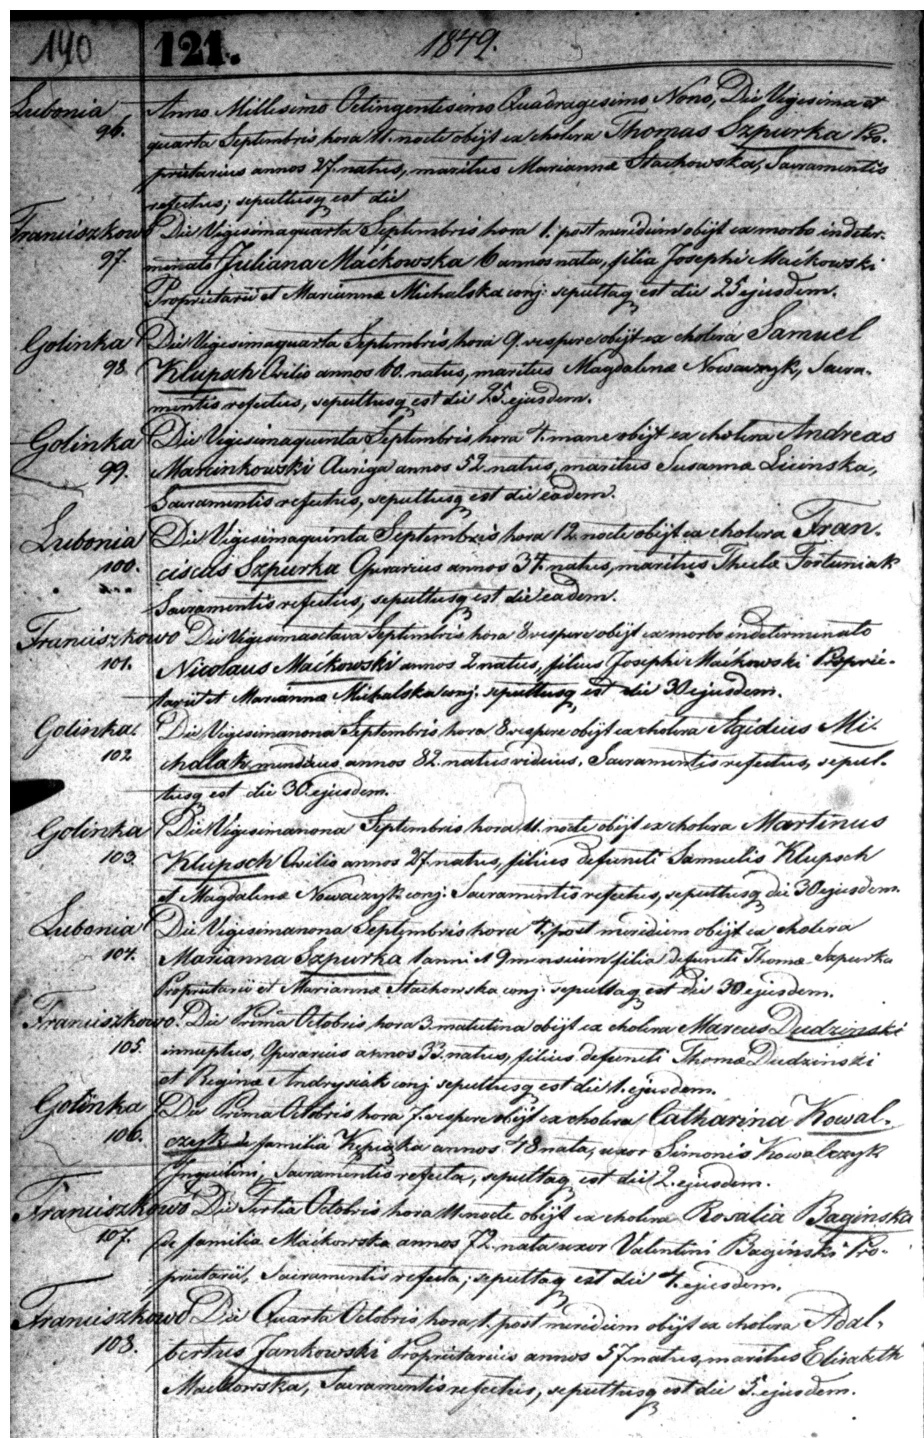 140 121. 1849.
Lubonia Anno Millesimo Octingentesimo Quadragesimo Nono, Die Vigesima et
96. quarta Septembris, hora 11. nocte obijt ex cholera Thomas Szpurka Pro-
prietarius annos 27. natus, maritus Mariannæ Stachowska, Sacramentis
refectus; sepultusq est die
Franciszkowo Die Vigesimaquarta Septembris hora 1. post meridium obijt ex morbo indeter-
97. minato Juliana Maćkowska 6 annos nata, filia Josephi Maćkowski
Proprietarii et Mariannæ Michalska conj: sepultaq est die 25 ejusdem.
Golinka Die Vigesimaquarta Septembris, hora 9. vespere obijt ex cholera Samuel
98. Klupsch Ovilio annos 60. natus, maritus Magdalenæ Nowaczyk, Sacra-
mentis refectus, sepultusq est die 25. ejusdem.
Golinka Die Vigesimaquinta Septembris, hora 4. mane obijt ex cholera Andreas
99. Marcinkowski Auriga annos 52. natus, maritus Susannæ Licinska,
Sacramentis refectus, sepultusq est die eadem.
Lubonia Die Vigesimaquinta Septembris hora 12. nocte obijt ex cholera Fran-
100. ciscus Szpurka Operarius annos 34. natus, maritus Theclæ Fortuniak
Sacramentis refectus, sepultusq est die eadem.
Franciszkowo Die Vigesimaoctava Septembris hora 8. vespere obijt ex morbo indeterminato
101. Nicolaus Maćkowski annos 2 natus, filius Josephi Maćkowski Proprie-
tarii et Mariannæ Michalska conj. sepultusq est die 30 ejusdem.
Golinka. Die Vigesimanona Septembris hora 8. vespere obijt ex cholera Agidius Mi-
102 chalak, mendicus annos 82. natus viduus. Sacramentis refectus, sepul-
tusq est die 30. ejusdem.
Golinka Die Vigesimanona Septembris hora 11. nocte obijt ex cholera Martinus
103. Klupsch Ovilio annos 27. natus, filius defuncti Samuelis Klupsch
et Magdalenæ Nowaczyk conj. Sacramentis refectus, sepultusq die 30 ejusdem.
Lubonia Die Vigesimanona Septembris hora 4. post meridium obijt ex cholera
104. Marianna Szpurka 1 anni et 9 mensium filia defuncti Thomæ Szpurka
Proprietarii et Mariannæ Stachowska conj. sepultaq est die 30 ejusdem.
Franciszkowo. Die Prima Octobris, hora 3. matutina obijt ex cholera Marcus Dudzinski
105. innuptus, Operarius annos 33. natus, filius defuncti Thomæ Dudzinski
et Reginæ Andrysiak conj sepultusq est die 1. ejusdem.
Golinka Die Prima Octobris hora 7. vespere obijt ex cholera Catharina Kowal-
106. czyk de familia Kepiszka annos 48 nata, uxor Simonis Kowalczyk
Inquilini, Sacramentis refecta, sepultaq est die 2. ejusdem.
Franciszkowo Die Tertia Octobris hora 11. nocte obijt ex cholera Rosalia Baginska
107. de familia Maćkowska annos 72. nata uxor Valentini Bagiński Pro-
prietarii, Sacramentis refecta; sepultaq est die 4. ejusdem.
Franciszkowo Die Quarta Octobris, hora 1. post meridium obijt ex cholera Adal-
108. bertus Jankowski Proprietarius annos 57. natus, maritus Elisabeth
Maćkowska, Sacramentis refectus, sepultusq est die 5. ejusdem.